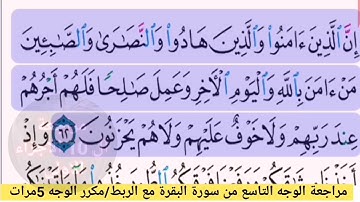 إِنَّ ٱلَّذِينَ ءَامَنُوا۟ وَٱلَّذِينَ هَادُوا۟ وَٱلنَّصَٰرَىٰ وَٱلصَّٰبِـِٔينَ
مَنْ ءَامَنَ بِٱللَّهِ وَٱلْيَوْمِ ٱلْءَاخِرِ وَعَمِلَ صَٰلِحًا فَلَهُمْ أَجْرُهُمْ
عِندَ رَبِّهِمْ وَلَا خَوْفٌ عَلَيْهِمْ وَلَا هُمْ يَحْزَنُونَ ٦٢ وَإِذْ
مراجعة الوجه التاسع من سورة البقرة مع الربط/مكرر الوجه 5مرات